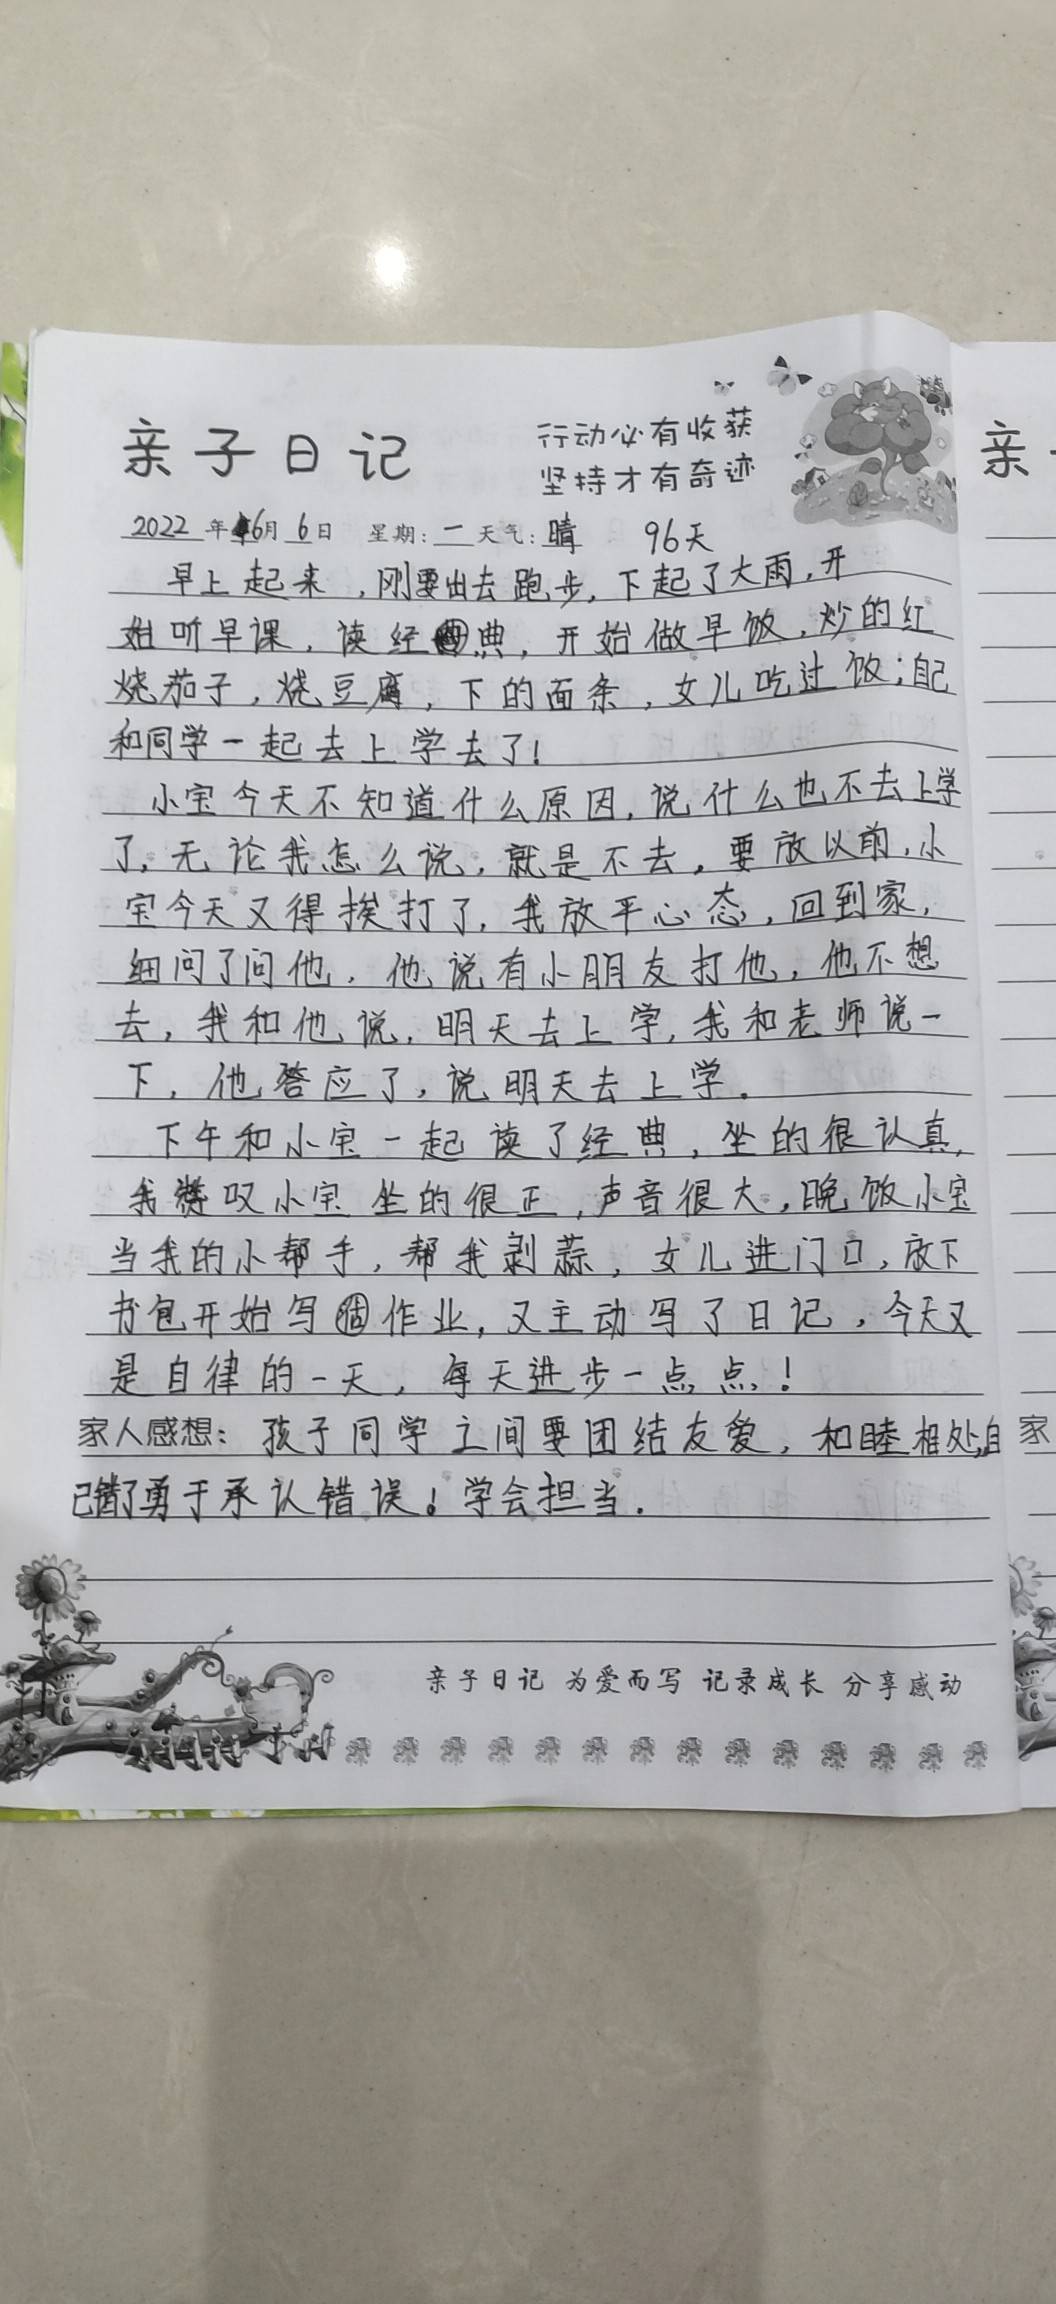 亲子日记
行动必有收获
坚持才有奇迹
亲
2022年6月6日 星期:一天气:晴 96天
早上起来,刚要出去跑步,下起了大雨,开
始听早课,读经典,开始做早饭,炒的红
烧茄子,烧豆腐,下的面条,女儿吃过饭;自己
和同学一起去上学去了!
小宝今天不知道什么原因,说什么也不去上学
了,无论我怎么说,就是不去,要放以前,小
宝今天又得挨打了,我放平心态,回到家,
细问了问他,他说有小朋友打他,他不想
去,我和他说,明天去上学,我和老师说一
下,他答应了,说明天去上学。
下午和小宝一起读了经典,坐的很认真,
我叹小宝坐的很正,声音很大,晚饭小宝
当我的小帮手,帮我剥蒜,女儿进门口,放下
书包开始写作业,又主动写了日记,今天又
是自律的一天,每天进步一点点!
家人感想:孩子同学之间要团结友爱,和睦相处,自
己错了勇于承认错误!学会担当.
家
亲子日记 为爱而写 记录成长 分享感动